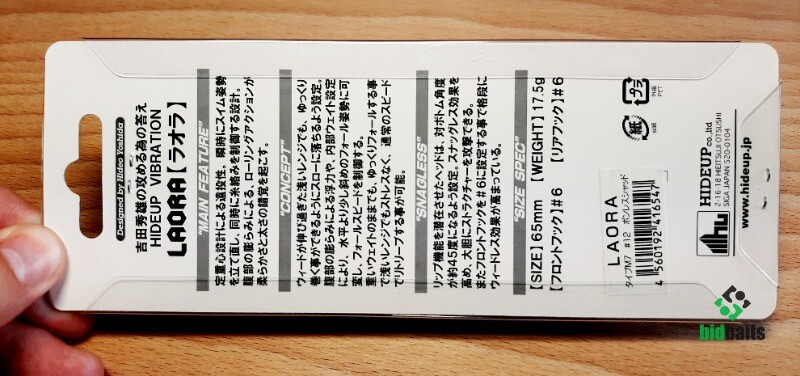 Designed by Hideo Yoshida
吉田秀雄の攻める為の答え
HIDEUP VIBRATION
LAORA【ラオラ】
"MAIN FEATURE"
定重心設計による遠投性、瞬時にスイム姿勢
を立て直し、同時に糸絡みを制御する設計。
腹部の膨らみによる、ローリングアクションが
柔らかさと太さの錯覚を起こす。
"CONCEPT"
ウィードが伸び過ぎた浅いレンジでも、ゆっくり
巻く事ができるようにスローに落ちるよう設定。
腹部の膨らみによる浮力や、内部ウェイト設定
により、水平より少し斜めのフォール姿勢に可
変し、フォールスピードを制御する。
重いウェイトのままでも、ゆっくりフォールする事
で浅いレンジでもストレスなく、通常のスピード
でリトリーブする事が可能。
"SNAGLESS"
リップ機能を潜在させたヘッドは、対ボトム角度
が約45度になるよう設定。スナッグレス効果を
高め、大胆にストラクチャーを攻撃できる。
またフロントフックを#6に設定する事で格段に
ウィードレス効果が高まっている。
"SIZE SPEC"
【SIZE】65mm 【WEIGHT】17.5g
【フロントフック】#6 【リアフック】#6
プラ
外装
PET
紙
台紙
LAORA
タイプM7 #12 ボンレスシャッド
4 560192 416547
HIDEUP co.,ltd.
2-16-18 HIEITSUJI OTSUSHI
SIGA JAPAN 520-0104
www.hideup.jp
bidbaits